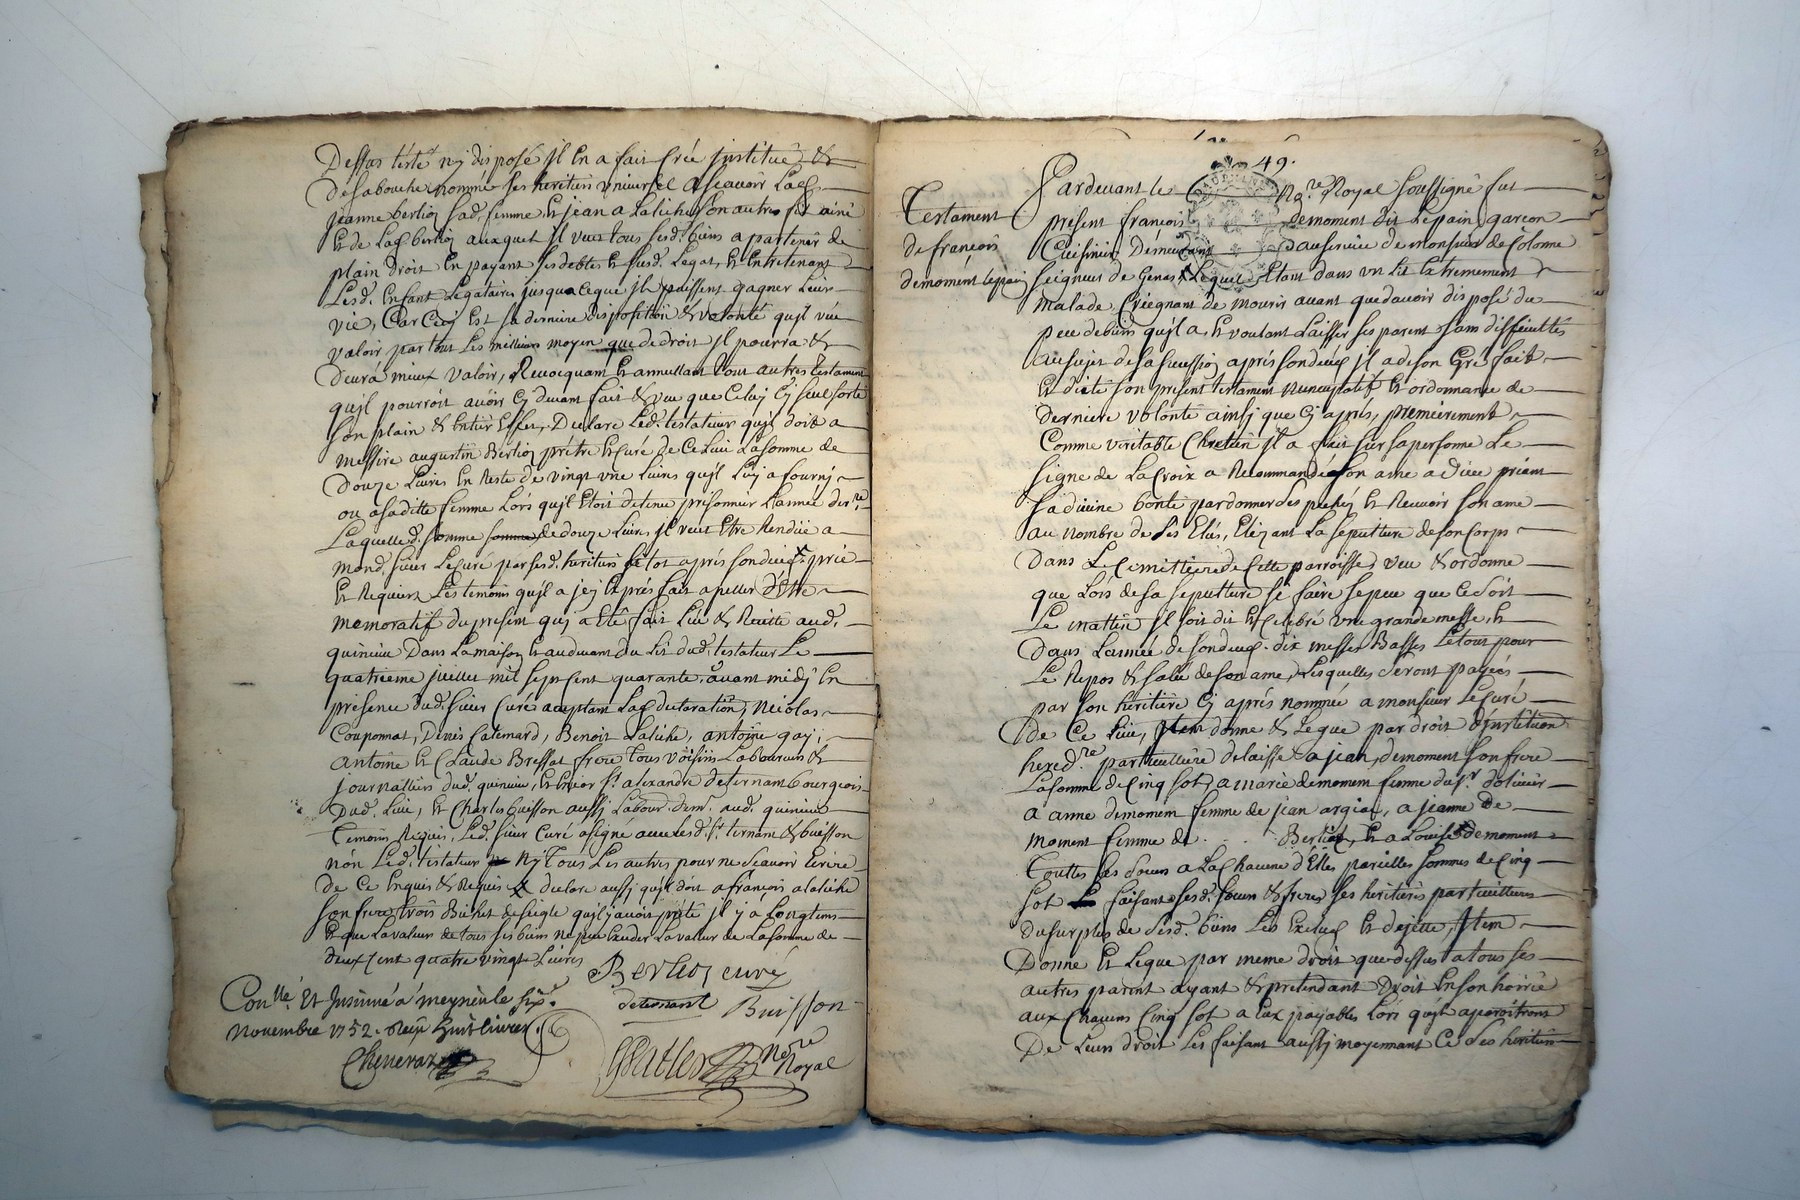 Dessus test.r ny disposé Il en a fait Crée Institué &
de sa bouche nommé ses heritiers universel a scavoir La
jeanne berlioz sad. femme, Et jean a Laliche son autre fils ainé
Et de Lad berlioz auxquel il veut tous sesd. biens apartenir de
plain droit En payant ses debtes Et susd. Legat, Et Entretenant
Lesd. Enfant Legataires jusqua ceque ils puissent gagner Leur
vie, Car Cecy Est sa derniere disposition & volonté qu'il veu
valoir par tout Les meilleurs moyen que de droit il pourra &
devra mieux valoir, Revocquant Et annullant tout autres testament
qu'il pourroit avoir Cy devant fait & veu que Celuy Cy seul sorte
son plain & Entier Effet, Declare Led. testateur qu'il doit a
messire augustin Berlioz prêtre Et Curé de Ce Lieu La somme de
Douze Livres En Reste de vingt une Livres qu'il Luy a fourny
ou a saditte femme Lors qu'il Etoit detenu prisonnier L'année der.re
Laquelle d. somme de douze Livres, il veut Etre Rendüe a
mond. sieur Le Curé par sesd. heritiers si tot aprés son deces prie
Et Requiert Les temoins qu'il a jcy Exprés fait apeller D'être
memoratif du present quy a Eté fait Lüe & Recitté aud.
quinieu Dans La maison Et audevant du Lit dud. testateur Le
quatrieme juillet mil sept Cent quarante, avant midy En
présence dud. sieur Curé aceptant La declaration, Nicolas
Couponnat, Denis Calemard, Benoit Laliche, antoine gay,
antoine Et Claude Bressat frere tous voisins Laboureurs &
journalliers dud. quinieu, Et sieur alexandre de ternant bourgeois
Dud. Lieu, Et Charles buisson aussy Labour. dem.t aud. quinieu
Temoins Requis, Led. sieur Curé a signé avec lesd. s.r ternant & buisson
non Led. testateur Ny Tous Les autres pour ne scavoir Ecrire
de Ce Enquis & Requis & declare aussy qu'il doit a françois a laliche
son frere trois Bichet de seigle qu'il y avoit preté il y a Longtems
Et que La valeur de tous ses biens ne peu Exceder La valeur de La somme de
deux Cent quatre vingt Livres
Berlioz curé
deternant Buisson
Con.llé Et Insinué a meyrieu le six.e
Novembre 1752. Reçu huit livres
Nore
Royal
49.
Testament
de françois
demoment lepain
Pardevant le No.re Royal Soussigné fut
présent françois demoment dit Lepain garcon
Cuisinier Demeurant au service de monsieur de Colonne
seigneur de Genas, Lequel Etant dans un Lit Extremement
malade, Creignant de mourir avant que davoir disposé du
peu de bien qu'il a, Et voulant Laisser ses parent sans difficultés
au sujet de sa sucession aprés son decés il a de son Gré fait
Et dicté son présent testament Nuncupatif Et ordonnance de
derniere volonté ainsy que Cy aprés, premierement
Comme veritable Chretien il a fait sur sa personne Le
signe de La Croix a Recommandé son ame a Dieu priant
sa divine bonté pardonner ses pechés Et Recevoir son ame
au nombre de ses Elus, Elizant La sepulture de son Corps
Dans Le Cimittiere de Cette parroisse, veu & ordonne
que Lors de sa sepulture si faire se peu que Ce soit
Le matin il soit dit Et Celebré une grande messe, Et
Dans L'année de son deces dix messes Basses Le tout pour
Le Repos & salut de son ame, Lesquelles seront payées
par son heritiere Cy aprés nommée a monsieur Le Curé
de Ce Lieu, Item donne & Legue par droit d'institution
hered.re particulliere delaisse a jean, demoment son frere
La somme de Cinq sol, a marie demoment femme du s.r dolivier
a anne demoment femme de jean argiat, a jeanne de
moment femme de . . Berlioz, Et a Louise demoment
Touttes ses soeurs a La Chacune d'Elles pareilles sommes de Cinq
sol faisant sesd. soeurs & freres ses heritiers particulliers
du surplus de sesd. biens Les Exclus Et dejette, Item
Donne Et Legue par meme droit que dessus a tous ses
autres parent ayant & pretendant Droit En son hoirie
aux Chacuns Cinq sol a Eux payables Lors qu'ils aparoitront
De Leurs droit Les faisant aussy moyennant Ce ses heritiers